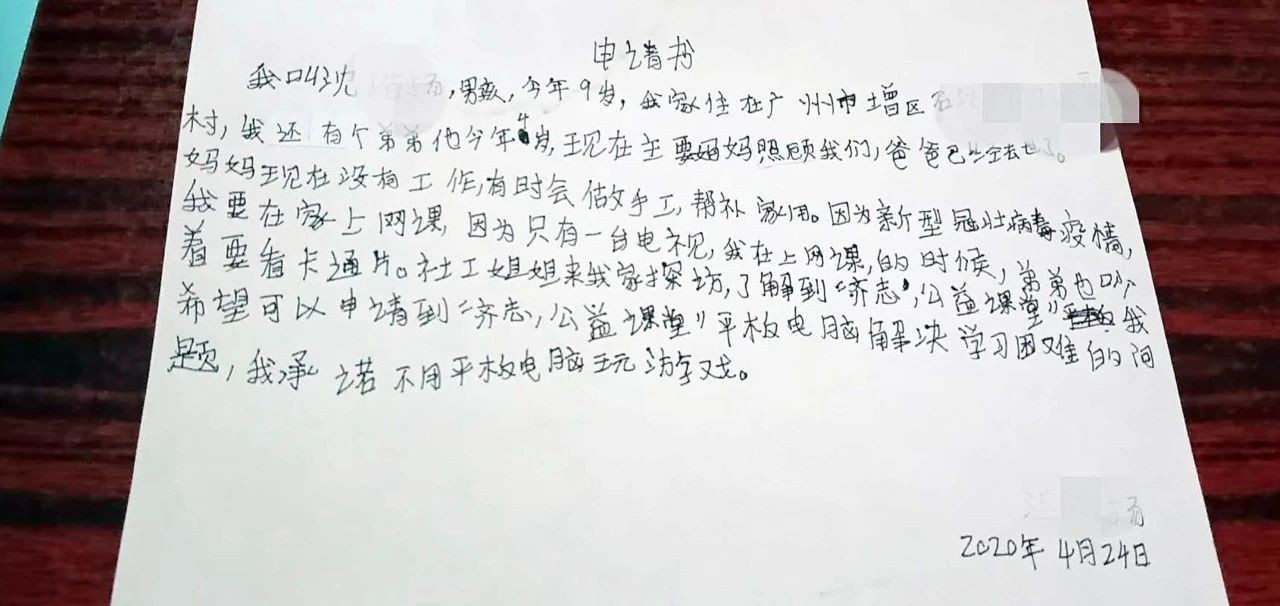 申请书
我叫沈，男孩，今年9岁，我家住在广州市增区
村，我还有个弟弟他今年4岁，现在主要妈妈照顾我们，爸爸已经去世了。
妈妈现在没有工作，有时会做手工，帮补家用。因为新型冠状病毒疫情，
我要在家上网课，因为只有一台电视，我在上网课，的时候，弟弟也吵
着要看卡通片。社工姐姐来我家探访，了解到“济志”，公益课堂”我
希望可以申请到“济志，公益课堂”平板电脑解决学习困难的问
题，我承诺不用平板电脑玩游戏。
2020年4月24日